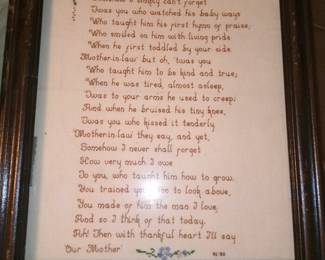 simply can't forget
'Twas you who watched his baby ways
Who taught him his first hymn of praise,
Who smiled on him with living pride
When he first toddled by your side
Mother-in-law but oh, 'twas you
Who taught him to be kind and true;
When he was tired, almost asleep,
'Twas to your arms he used to creep;
And when he bruised his tiny knee,
'Twas you who kissed it tenderly.
Mother-in-law they say, and yet,
Somehow I never shall forget
How very much I owe
To you, who taught him how to grow.
You trained your son to look above,
You made of him the man I love;
And so I think of that today.
Ah! Then with thankful heart I'll say
'Our Mother'